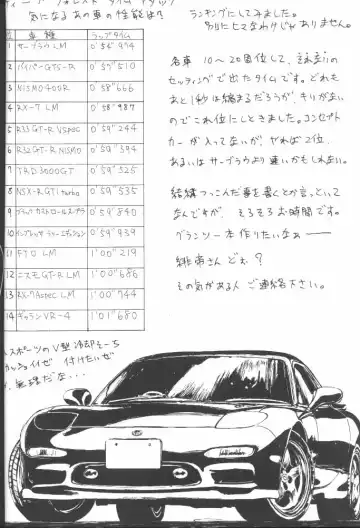 ディープフォレスト タイムアタック
気になるあの車の性能は?
車種 ラップタイム
1 サーブラウLM 0'54"974
2 バイパーGTS-R 0'57"510
3 NISMO400R 0'58"666
4 RX-7 LM 0'58"987
5 R33GT-R VSpec 0'59"244
6 R32GT-R NISMO 0'59"394
7 TRD3000GT 0'59"525
8 NSX-R GT1 turbo 0'59"535
9 0'59"840
10 0'59"939
11 FTO LM 1'00"219
12 ニスモGT-R LM 1'00"686
13 RX-7Aspec LM 1'00"744
14 ギャランVR-4 1'01"680
ランキングにしてみました。
別にヒマなわけじゃありません。
各車 10〜20周位して、それぞれの
セッティングで出たタイムです。どれも
あと1秒は縮まるだろうが、キリがない
のでこれ位にしときました。コンセプト
カーが入ってないが、やれば2位、
あるいはサーブラウより速いかもしれない。
結構つっこんだ事を書くとか言っといて
なんですが、そろそろお時間です。
グランツー本作りたいなぁー
緋帝さんどぉ?
その気がある人 ご連絡下さい。
スポーツのV型冷却そーち
カッコイイゼ 付けたいぜ
無理だな…